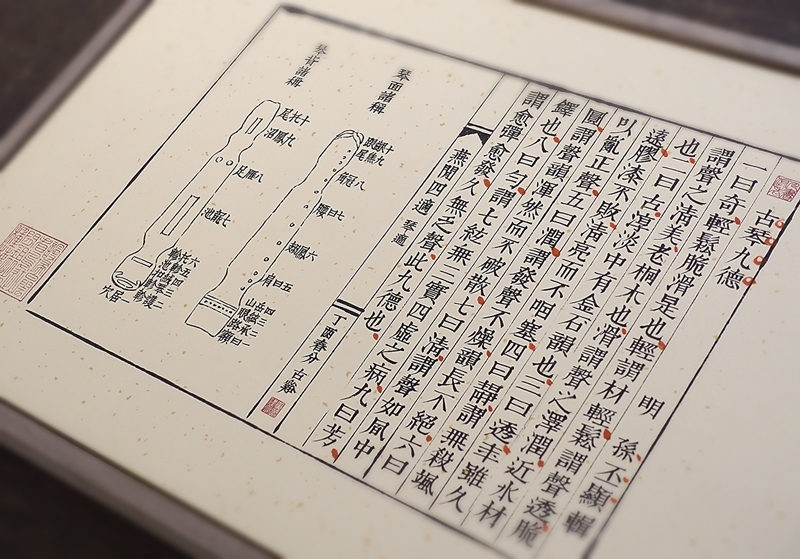 古琴九德
明 孫丕顯 輯
一曰奇輕鬆脆滑是也輕謂材輕鬆謂聲透脆
謂聲之清美老桐木也滑謂聲之澤潤近水材
也二曰古淳淡中有金石韻也三曰透年雖久
遠膠漆不敗清亮而不咽塞四曰靜謂無殺颯
以亂正聲五曰潤謂發聲不燥韻長不絕六曰
圓謂聲韻渾然而不破散七曰清謂聲如風中
鐸也八曰勻謂七絃無三實四虛之病九曰芳
謂愈彈愈發久無乏聲此九德也
燕閒四適 琴適
丁酉春分
琴面諸稱
九焦尾
八冠角
七曰腰
六鳳翅
五曰肩
四岳山
二承露
一曰額
琴背諸稱
十托尾
九鳳沼
七龍池